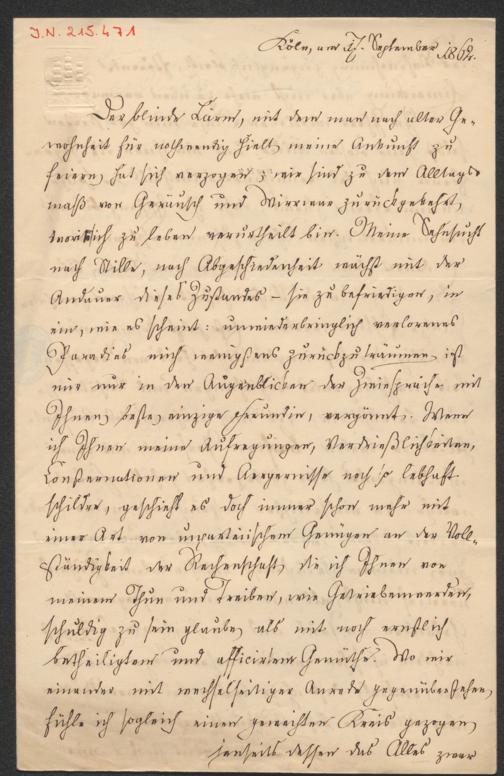 J.N. 215.471
Köln, am 17. September 1862.
Der blinde Lärm, mit dem man nach alter Ge-
wohnheit für nothwendig hielt meine Ankunft zu
feiern, hat sich verzogen; wir sind zu dem Alltags-
maß von Geräusch und Wirrwar zurückgekehrt,
worin ich zu leben verurtheilt bin. Meine Sehnsucht
nach Stille, nach Abgeschiedenheit wächst mit der
Andauer dieses Zustandes – sie zu befriedigen, in
ein, wie es scheint: unwiederbringlich verlorenes
Paradies mich wenigstens zurückzuträumen, ist
mir nur in den Augenblicken der Zwiesprache mit
Ihnen, beste, einzige Freundin, vergönnt. Wenn
ich Ihnen meine Aufregungen, Verdrießlichkeiten,
Consternationen und Aergernisse noch so lebhaft
schildre, geschieht es doch immer schon mehr mit
einer Art von unparteiischem Genügen an der Voll-
ständigkeit der Rechenschaft, die ich Ihnen von
meinem Thun und Treiben, wie Getriebenwerden,
schuldig zu sein glaube, als mit noch ernstlich
betheiligtem und afficirtem Gemüthe. Wo wir
einander mit wechselseitiger Anrede gegenüberstehen,
fühle ich sogleich einen geweihten Kreis gezogen,
jenseits dessen das Alles zwar